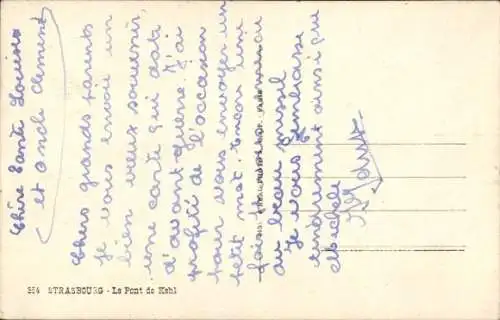 Chère Tante Louise
et oncle Clement
Chers grands parents
je vous envoie un
bien vieux souvenir,
une carte qui date
d'avant guerre. J'ai
profité de l'occasion
pour vous envoyer un
petit mot. Encore une
fois
au beau
Je vous embrasse
tendrement ainsi que
Michele
354 STRASBOURG - Le Pont de Kehl